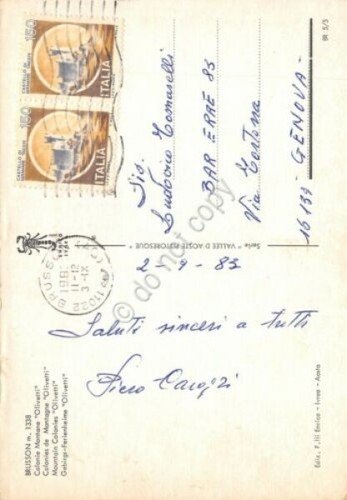 BRUSSON m. 1338
Colonie Montane "Olivetti"
Colonies de Montagne "Olivetti"
Mountain Colonies "Olivetti"
Gebirgs-Ferienheime "Olivetti"
2-9-83
Saluti sinceri a tutti
Piero
11022 BRUSSO
11-12
3-IX
Serie "VALLEE D'AOSTE PITTORESQUE"
Ediz. F.lli Enrico - Ivrea - Aosta
BR 5/5
150
CASTELLO DI
ITALIA
150
CASTELLO DI
ITALIA
Sig.
Ludovico Tomaselli
BAR ERRE 85
Via Tortona
16139 - GENOVA -
do not copy